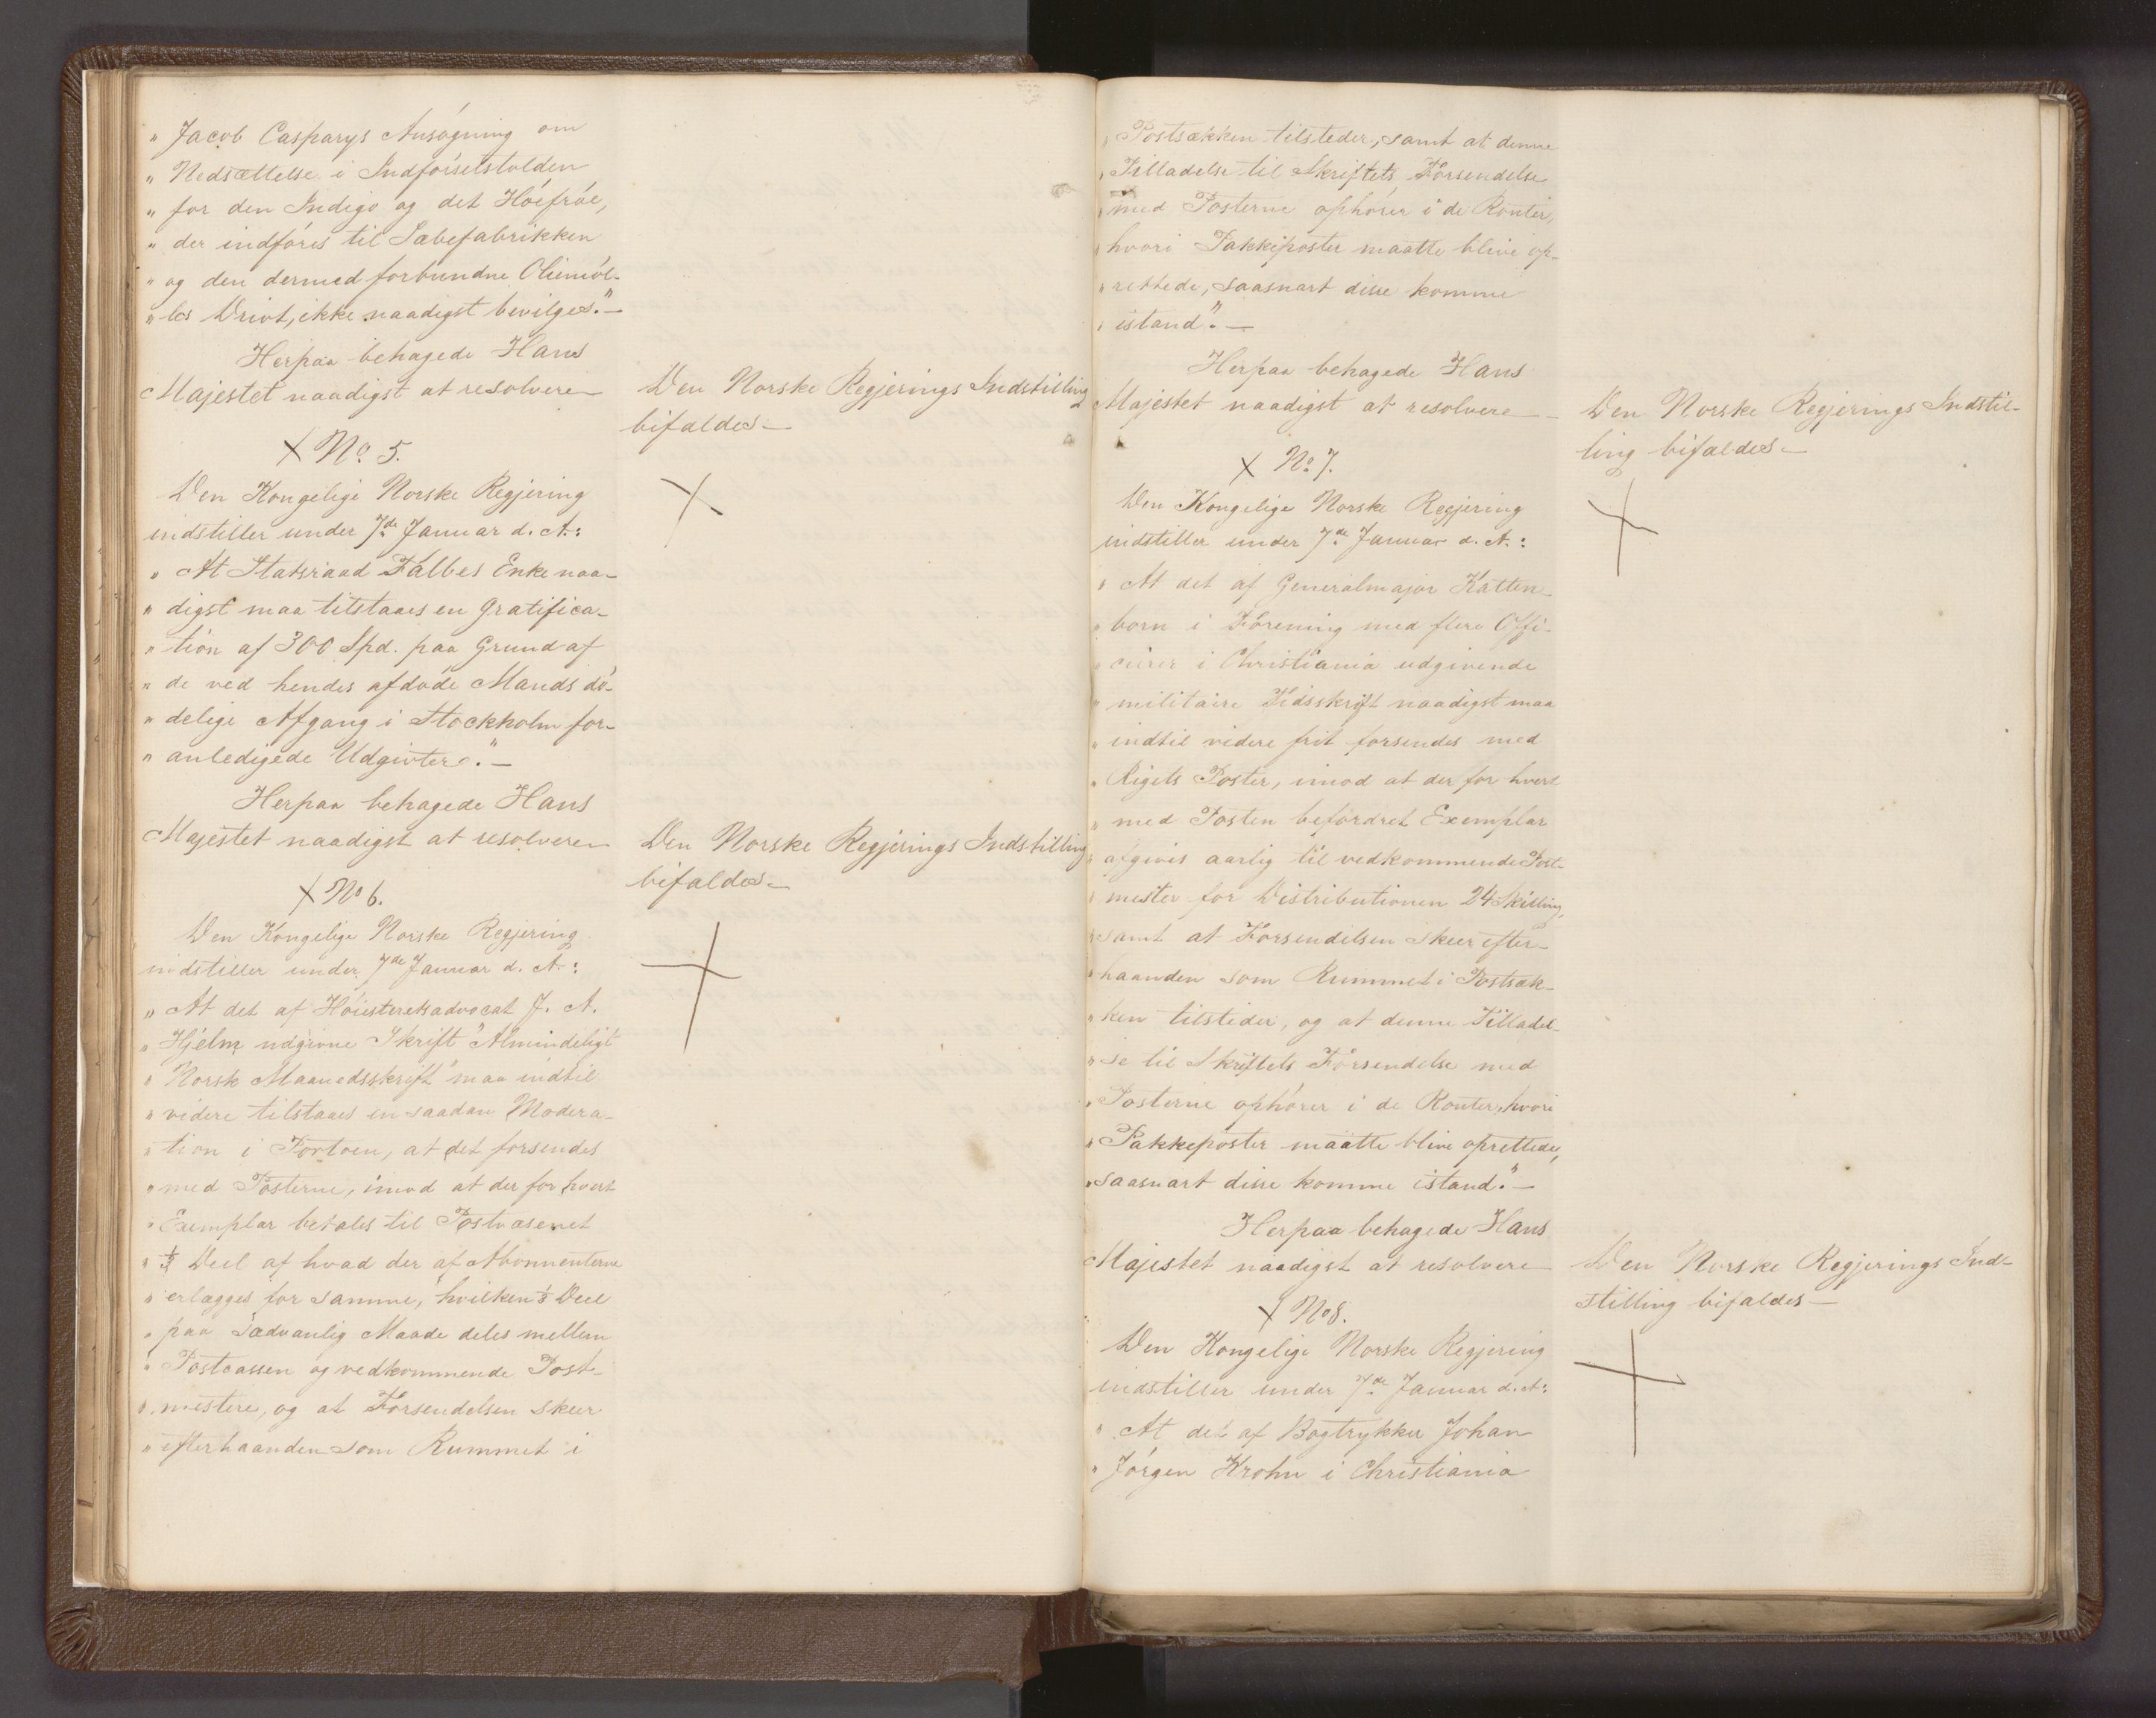 „ Jacob Casparys Ansøgning om
„ Nedsættelse i Indførselstolden
„ for den Indigo og det Høefrøe,
„ der indføres til Sæbefabrikken
„ og den dermed forbundne Oliemøl-
„ les Drivt, ikke naadigst bevilges." —
Herpaa behagede Hans
Majestet naadigst at resolvere —
Den Norske Regjerings Indstilling
bifaldes —
+ No. 5.
Den Kongelige Norske Regjering
indstiller under 7de Januar d. A.:
„ At Statsraad Falbes Enke naa-
„ digst maa tilstaaes en Gratifica-
„ tion af 300 Spd. paa Grund af
„ de ved hendes afdøde Mands dø-
„ delige Afgang i Stockholm for-
„ anledigede Udgivter." —
Herpaa behagede Hans
Majestet naadigst at resolvere —
Den Norske Regjerings Indstilling
bifaldes —
+ No 6.
Den Kongelige Norske Regjering
indstiller under 7de Januar d. A.:
„ At det af Høiesteretsadvocat J. A.
„ Hjelm udgivne Skrift "Almindeligt
„ Norsk Maanedsskrift" maa indtil
„ videre tilstaaes en saadan Modera-
„ tion i Portoen, at det forsendes
„ med Posterne, imod at der for hvert
„ Exemplar betales til Postvæsenet
„ ⅓ Deel af hvad der af Abonnenterne
„ erlægges for samme, hvilken ⅓ Deel
„ paa sædvanlig Maade deles mellem
„ Postcassen og vedkommende Post-
„ mestere, og at Forsendelsen skeer
„ efterhaanden som Rummet i
„ Postsækken tilsteder, samt at denne
„ Tilladelse til Skriftets Forsendelse
„ med Posterne ophører i de Router,
„ hvori Pakkeposter maatte blive op-
„ rettede, saasnart disse komme
„ istand." —
Herpaa behagede Hans
Majestet naadigst at resolvere —
Den Norske Regjerings Indstil-
ling bifaldes —
+ No. 7.
Den Kongelige Norske Regjering
indstiller under 7de Januar d. A.:
„ At det af Generalmajor Katten-
„ born i Forening med flere Offi-
„ cierer i Christiania udgivende
„ militaire Tidsskrift naadigst maa
„ indtil videre frit forsendes med
„ Rigets Poster, imod at der for hvert
„ med Posten befordret Exemplar
„ afgives aarlig til vedkommende Post-
„ mester for Distributionen 24 Skilling,
„ samt at Forsendelsen skeer efter-
„ haanden som Rummet i Postsæk-
„ ken tilsteder, og at denne Tilladel-
„ se til Skriftets Forsendelse med
„ Posterne ophører i de Router, hvori
„ Pakkeposter maatte blive oprettede,
„ saasnart disse komme istand." —
Herpaa behagede Hans
Majestet naadigst at resolvere —
Den Norske Regjerings Ind-
stilling bifaldes —
+ No 8.
Den Kongelige Norske Regjering
indstiller under 7de Januar d. A:
„ At det af Bogtrykker Johan
„ Jørgen Krohn i Christiania